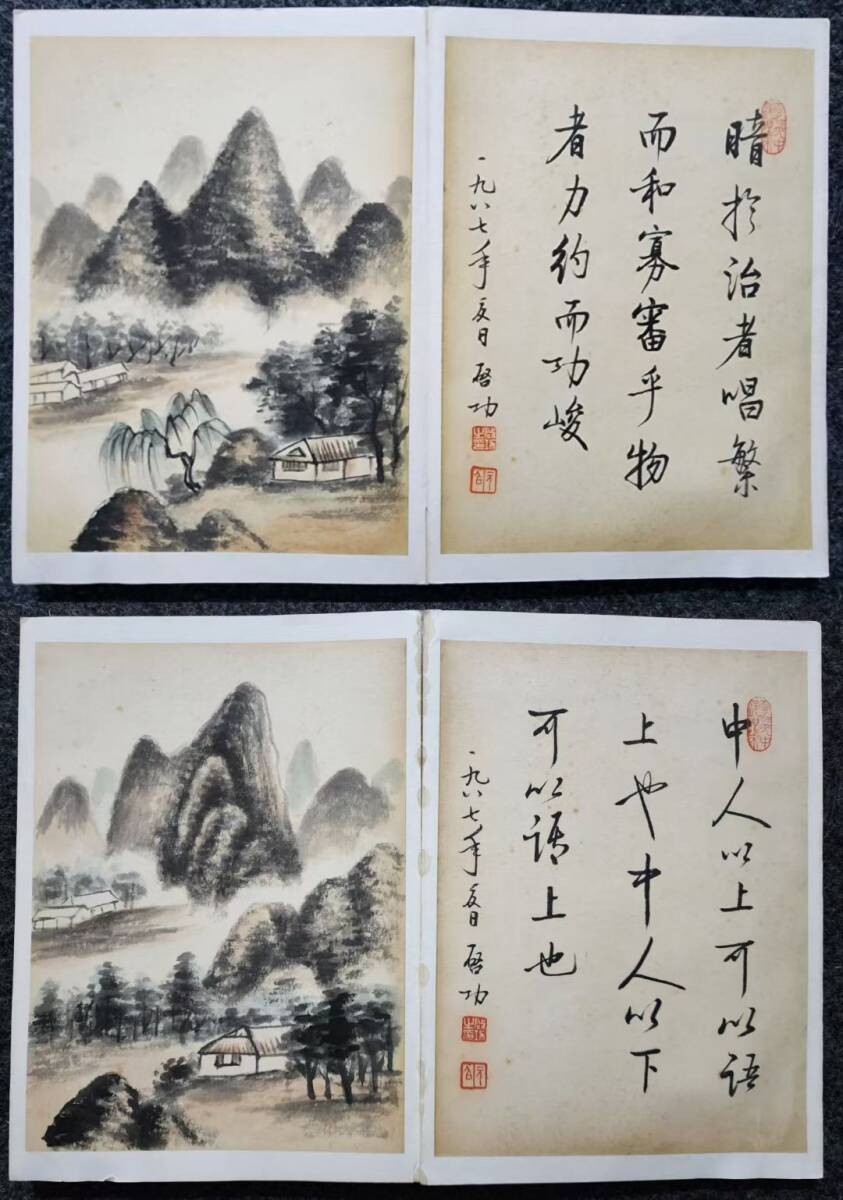 暗於治者唱繁
而和寡審乎物
者力約而功峻
一九八七年夏日 啓功
中人以上可以語
上也中人以下
可以語上也
一九八七年夏日 啓功